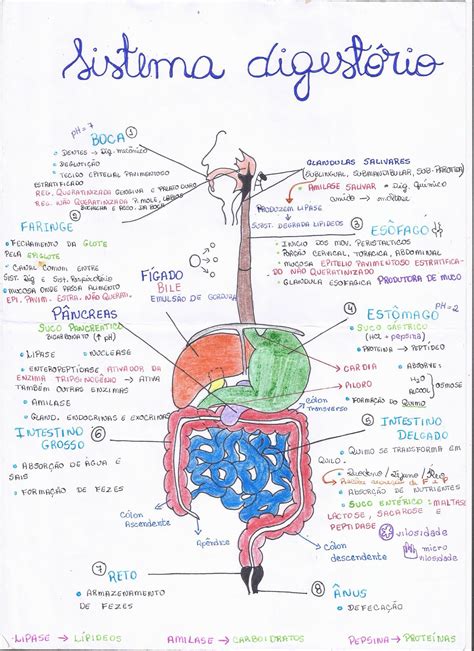 Sistema digestório
pH=7
BOCA 1
• DENTES → Dig. mecânico
• DEGLUTIÇÃO
• TECIDO EPITELIAL PAVIMENTOSO
ESTRATIFICADO
REG. QUERATINIZADA GENGIVA E PALATO DURO
REG. NÃO QUERATINIZADA P. MOLE, LÁBIOS
BOCHECHA E ASSO. DA BOCA
GLANDULAS SALIVARES
(SUBLINGUAL, SUBMANDIBULAR, SUB-PARÓTIDA)
• AMILASE SALIVAR • Dig. Químico
amido → maltose
PRODUZEM LIPASE
SUBST. DEGRADA LIPÍDEOS
2
FARINGE
• FECHAMENTO DA GLOTE
PELA EPIGLOTE
• CANAL COMUM ENTRE
SIST. DIG E SIST. RESPIRATÓRIO
• MUCOSA ONDE PASSA ALIMENTO
EPI. PAVIM. ESTRA. NÃO QUERAM.
3
ESÔFAGO
• INICIO DOS MOV. PERISTALTICOS
• PORÇÃO CERVICAL, TORACICA, ABDOMINAL
• MUCOSA EPITELIO PAVIMENTOSO ESTRATIFICA-
DO NÃO QUERATINIZADO
• GLANDULA ESOFAGICA PRODUTORA DE MUCO
FÍGADO
BILE
EMULSÃO DE GORDURA
PÂNCREAS
SUCO PANCREATICO
BICARBONATO (↑ pH)
• LIPASE • NUCLEASE
• ENTEROPEPTIDASE ATIVADOR DA
ENZIMA TRIPSINOGÊNIO → ATIVA
TAMBÉM OUTRAS ENZIMAS
• AMILASE
• GLAND. ENDOCRINAS E EXOCRINAS
4
ESTÔMAGO pH=2
• SUCO GÁSTRICO
(HCl + pepsina)
• PROTEINA → PEPTÍDEO
CARDIA
PILORO
• ABSORVE:
H2O
ALCOOL
osmose
• FORMAÇÃO DO QUIMO
Cólon
transverso
INTESTINO 6
GROSSO
• ABSORÇÃO DE ÁGUA E
SAIS
• FORMAÇÃO DE FEZES
5 INTESTINO
DELGADO
• QUIMO SE TRANSFORMA EM
QUILO.
• Duodeno/Jejuno/Íleo
• ABSORÇÃO DE NUTRIENTES
• SUCO ENTÉRICO: MALTASE
LACTOSE, SACAROSE E
PEPTIDASE
vilosidade
micro
vilosidade
Cólon
Ascendente
Apêndice
Cólon
descendente
7
RETO
• ARMAZENAMENTO
DE FEZES
8 ÂNUS
• DEFECAÇÃO
LIPASE → LÍPIDEOS AMILASE → CARBOIDRATOS PEPSINA → PROTEÍNAS